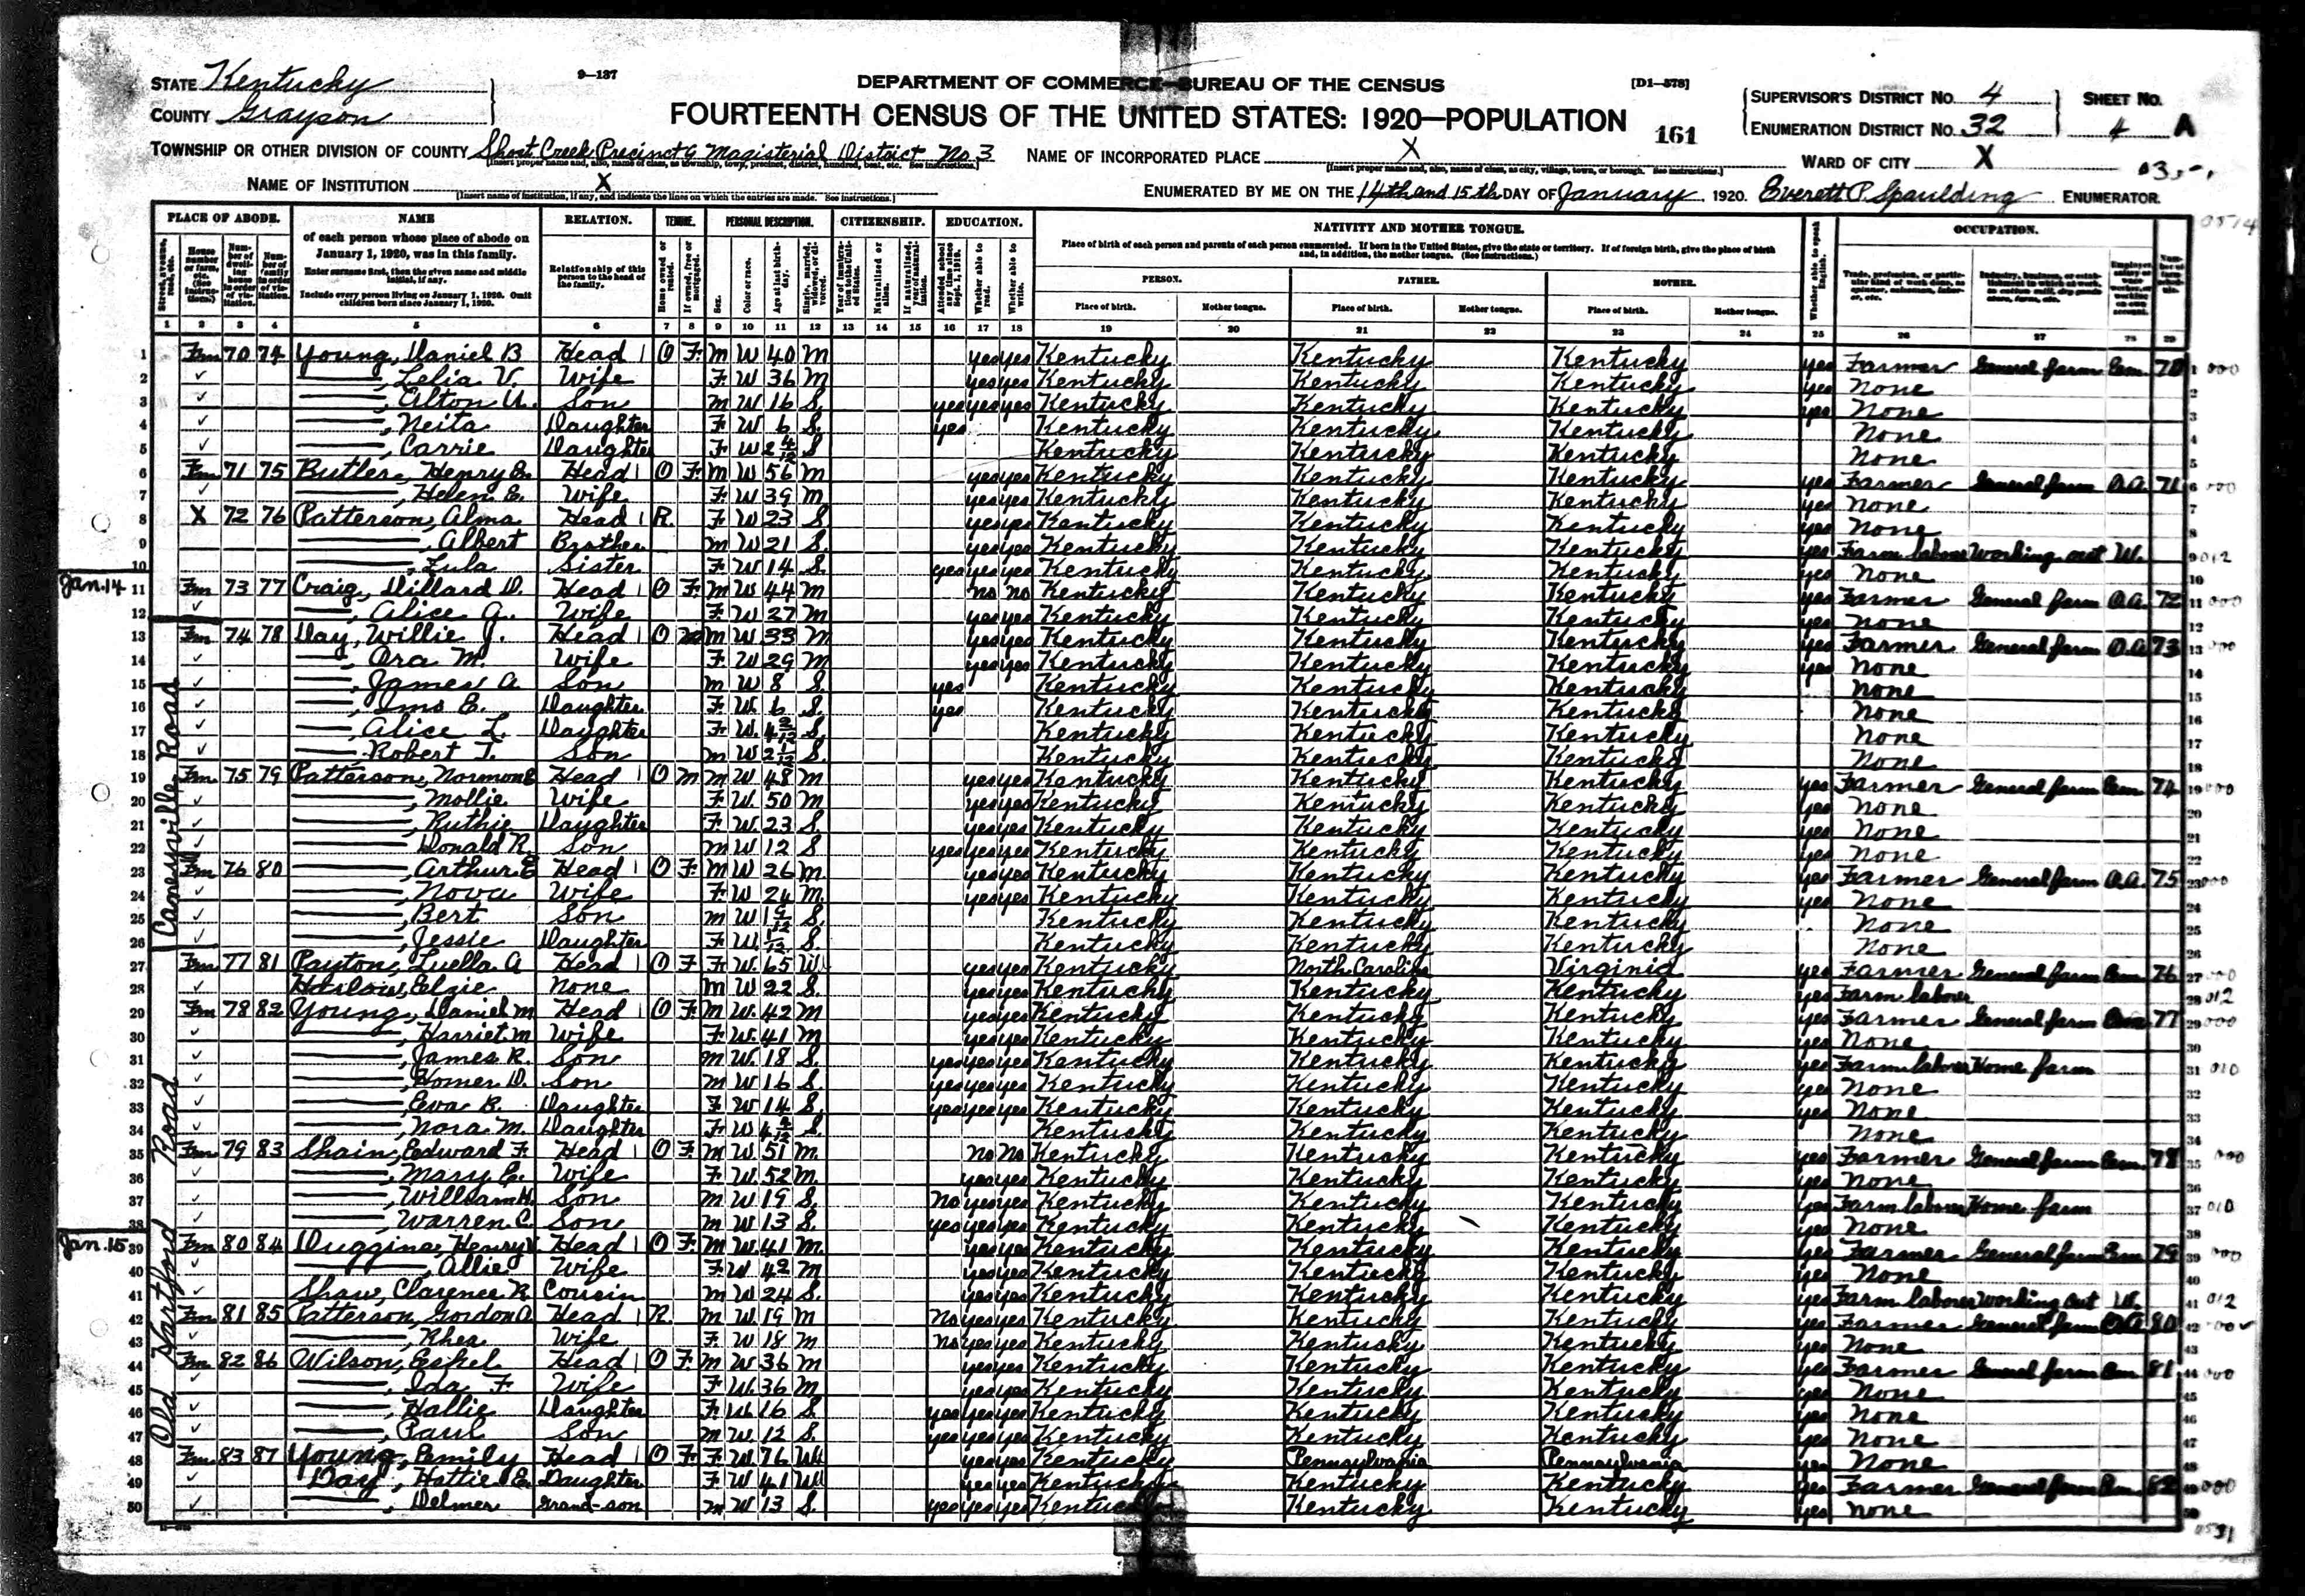 9—137
DEPARTMENT OF COMMERCE—BUREAU OF THE CENSUS
[D1—578]
STATE Kentucky
COUNTY Grayson
FOURTEENTH CENSUS OF THE UNITED STATES: 1920—POPULATION
161
SUPERVISOR'S DISTRICT No. 4
ENUMERATION DISTRICT No. 32
SHEET No.
4 A
TOWNSHIP OR OTHER DIVISION OF COUNTY Short Creek Precinct 6 Magisterial District No. 3
NAME OF INCORPORATED PLACE X
WARD OF CITY X
NAME OF INSTITUTION X
[Insert name of institution, if any, and indicate the lines on which the entries are made. See instructions.]
ENUMERATED BY ME ON THE 14th and 15th DAY OF January, 1920. Everett P. Spaulding ENUMERATOR.
PLACE OF ABODE. NAME RELATION. TENURE. PERSONAL DESCRIPTION. CITIZENSHIP. EDUCATION. NATIVITY AND MOTHER TONGUE. OCCUPATION.
of each person whose place of abode on January 1, 1920, was in this family.
Enter surname first, then the given name and middle initial, if any.
Include every person living on January 1, 1920. Omit children born since January 1, 1920.
Relationship of this person to the head of the family.
Place of birth of each person and parents of each person enumerated. If born in the United States, give the state or territory. If of foreign birth, give the place of birth and, in addition, the mother tongue. (See instructions.)
PERSON. FATHER. MOTHER.
Place of birth. Mother tongue. Place of birth. Mother tongue. Place of birth. Mother tongue.
1 2 3 4 5 6 7 8 9 10 11 12 13 14 15 16 17 18 19 20 21 22 23 24 25 26 27 28 29
1 Fm 70 74 Young, Daniel B Head 1 O F M W 40 M yes yes Kentucky Kentucky Kentucky yes Farmer General farm Em 70
2 Lelia V. Wife F W 36 M yes yes Kentucky Kentucky Kentucky yes None
3 Elton U. Son M W 16 S yes yes yes Kentucky Kentucky Kentucky yes None
4 Neita Daughter F W 6 S yes Kentucky Kentucky Kentucky None
5 Carrie Daughter F W 2 4/12 S Kentucky Kentucky Kentucky None
6 Fm 71 75 Butler, Henry E. Head 1 O F M W 56 M yes yes Kentucky Kentucky Kentucky yes Farmer General farm O.A. 71
7 Helen E. Wife F W 39 M yes yes Kentucky Kentucky Kentucky yes None
8 X 72 76 Patterson, Alma Head 1 R. F W 23 S yes yes Kentucky Kentucky Kentucky yes None
9 Albert Brother M W 21 S yes yes Kentucky Kentucky Kentucky yes Farm laborer Working out W.
10 Lula Sister F W 14 S yes yes yes Kentucky Kentucky Kentucky yes None
Jan. 14 11 Fm 73 77 Craig, Dillard D. Head 1 O F M W 44 M no no Kentucky Kentucky Kentucky yes Farmer General farm O.A. 72
12 Alice G. Wife F W 27 M yes yes Kentucky Kentucky Kentucky yes None
13 Fm 74 78 Day, Willie J. Head 1 O M W 33 M yes yes Kentucky Kentucky Kentucky yes Farmer General farm O.A. 73
14 Ora M. Wife F W 29 M yes yes Kentucky Kentucky Kentucky yes None
15 James A. Son M W 8 S yes Kentucky Kentucky Kentucky None
16 Imo E. Daughter F W 6 S yes Kentucky Kentucky Kentucky None
17 Alice L. Daughter F W 4 2/12 S Kentucky Kentucky Kentucky None
18 Robert T. Son M W 2 1/12 S Kentucky Kentucky Kentucky None
Caneyville Road
19 Fm 75 79 Patterson, Normon E Head 1 O M M W 48 M yes yes Kentucky Kentucky Kentucky yes Farmer General farm Em 74
20 Mollie Wife F W 50 M yes yes Kentucky Kentucky Kentucky yes None
21 Ruthie Daughter F W 23 S yes yes Kentucky Kentucky Kentucky yes None
22 Donald R. Son M W 12 S yes yes yes Kentucky Kentucky Kentucky yes None
23 Fm 76 80 Arthur E Head 1 O F M W 26 M yes yes Kentucky Kentucky Kentucky yes Farmer General farm O.A. 75
24 Nova Wife F W 24 M yes yes Kentucky Kentucky Kentucky yes None
25 Bert Son M W S Kentucky Kentucky Kentucky None
26 Jessie Daughter F W S Kentucky Kentucky Kentucky None
27 Fm 77 81 Payton, Luella A Head 1 O F F W 65 W yes yes Kentucky North Carolina Virginia yes Farmer General farm Em 76
28 Harlow, Elzie None M W 22 S yes yes Kentucky Kentucky Kentucky yes Farm laborer
29 Fm 78 82 Young, Daniel M Head 1 O F M W 42 M yes yes Kentucky Kentucky Kentucky yes Farmer General farm Em 77
30 Harriet M Wife F W 41 M yes yes Kentucky Kentucky Kentucky yes None
31 James R. Son M W 18 S yes yes yes Kentucky Kentucky Kentucky yes Farm laborer Home farm
32 Homer D. Son M W 16 S yes yes yes Kentucky Kentucky Kentucky yes None
33 Eva R. Daughter F W 14 S yes yes yes Kentucky Kentucky Kentucky yes None
34 Nora M. Daughter F W S Kentucky Kentucky Kentucky None
35 Fm 79 83 Shain, Edward F. Head 1 O F M W 51 M No No Kentucky Kentucky Kentucky yes Farmer General farm Em 78
36 Mary E. Wife F W 52 M yes yes Kentucky Kentucky Kentucky yes None
37 William H. Son M W 19 S No yes yes Kentucky Kentucky Kentucky yes Farm laborer Home farm
38 Warren C. Son M W 13 S yes yes yes Kentucky Kentucky Kentucky yes None
Old Hartford Road
Jan. 15 39 Fm 80 84 Duggins, Henry V. Head 1 O F M W 41 M yes yes Kentucky Kentucky Kentucky yes Farmer General farm Em 79
40 Allie Wife F W 42 M yes yes Kentucky Kentucky Kentucky yes None
41 Shaw, Clarence R. Cousin M W 24 S yes yes Kentucky Kentucky Kentucky yes Farm laborer Working out W.
42 Fm 81 85 Patterson, Gordon O Head 1 R. M W 19 M No yes yes Kentucky Kentucky Kentucky yes Farmer General farm O.A. 80
43 Rhea Wife F W 18 M No yes yes Kentucky Kentucky Kentucky yes None
44 Fm 82 86 Wilson, Eskel Head 1 O F M W 36 M yes yes Kentucky Kentucky Kentucky yes Farmer General farm Em 81
45 Ida F. Wife F W 36 M yes yes Kentucky Kentucky Kentucky yes None
46 Hallie Daughter F W 16 S yes yes yes Kentucky Kentucky Kentucky yes None
47 Paul Son M W 12 S yes yes yes Kentucky Kentucky Kentucky yes None
48 Fm 83 87 Young, Emily Head 1 O F F W 76 Wd yes yes Kentucky Pennsylvania Pennsylvania yes None
49 Day, Hattie E. Daughter F W 41 Wd yes yes Kentucky Kentucky Kentucky yes Farmer General farm Em 82
50 Delmer Grand-son M W 13 S yes yes yes Kentucky Kentucky Kentucky yes None